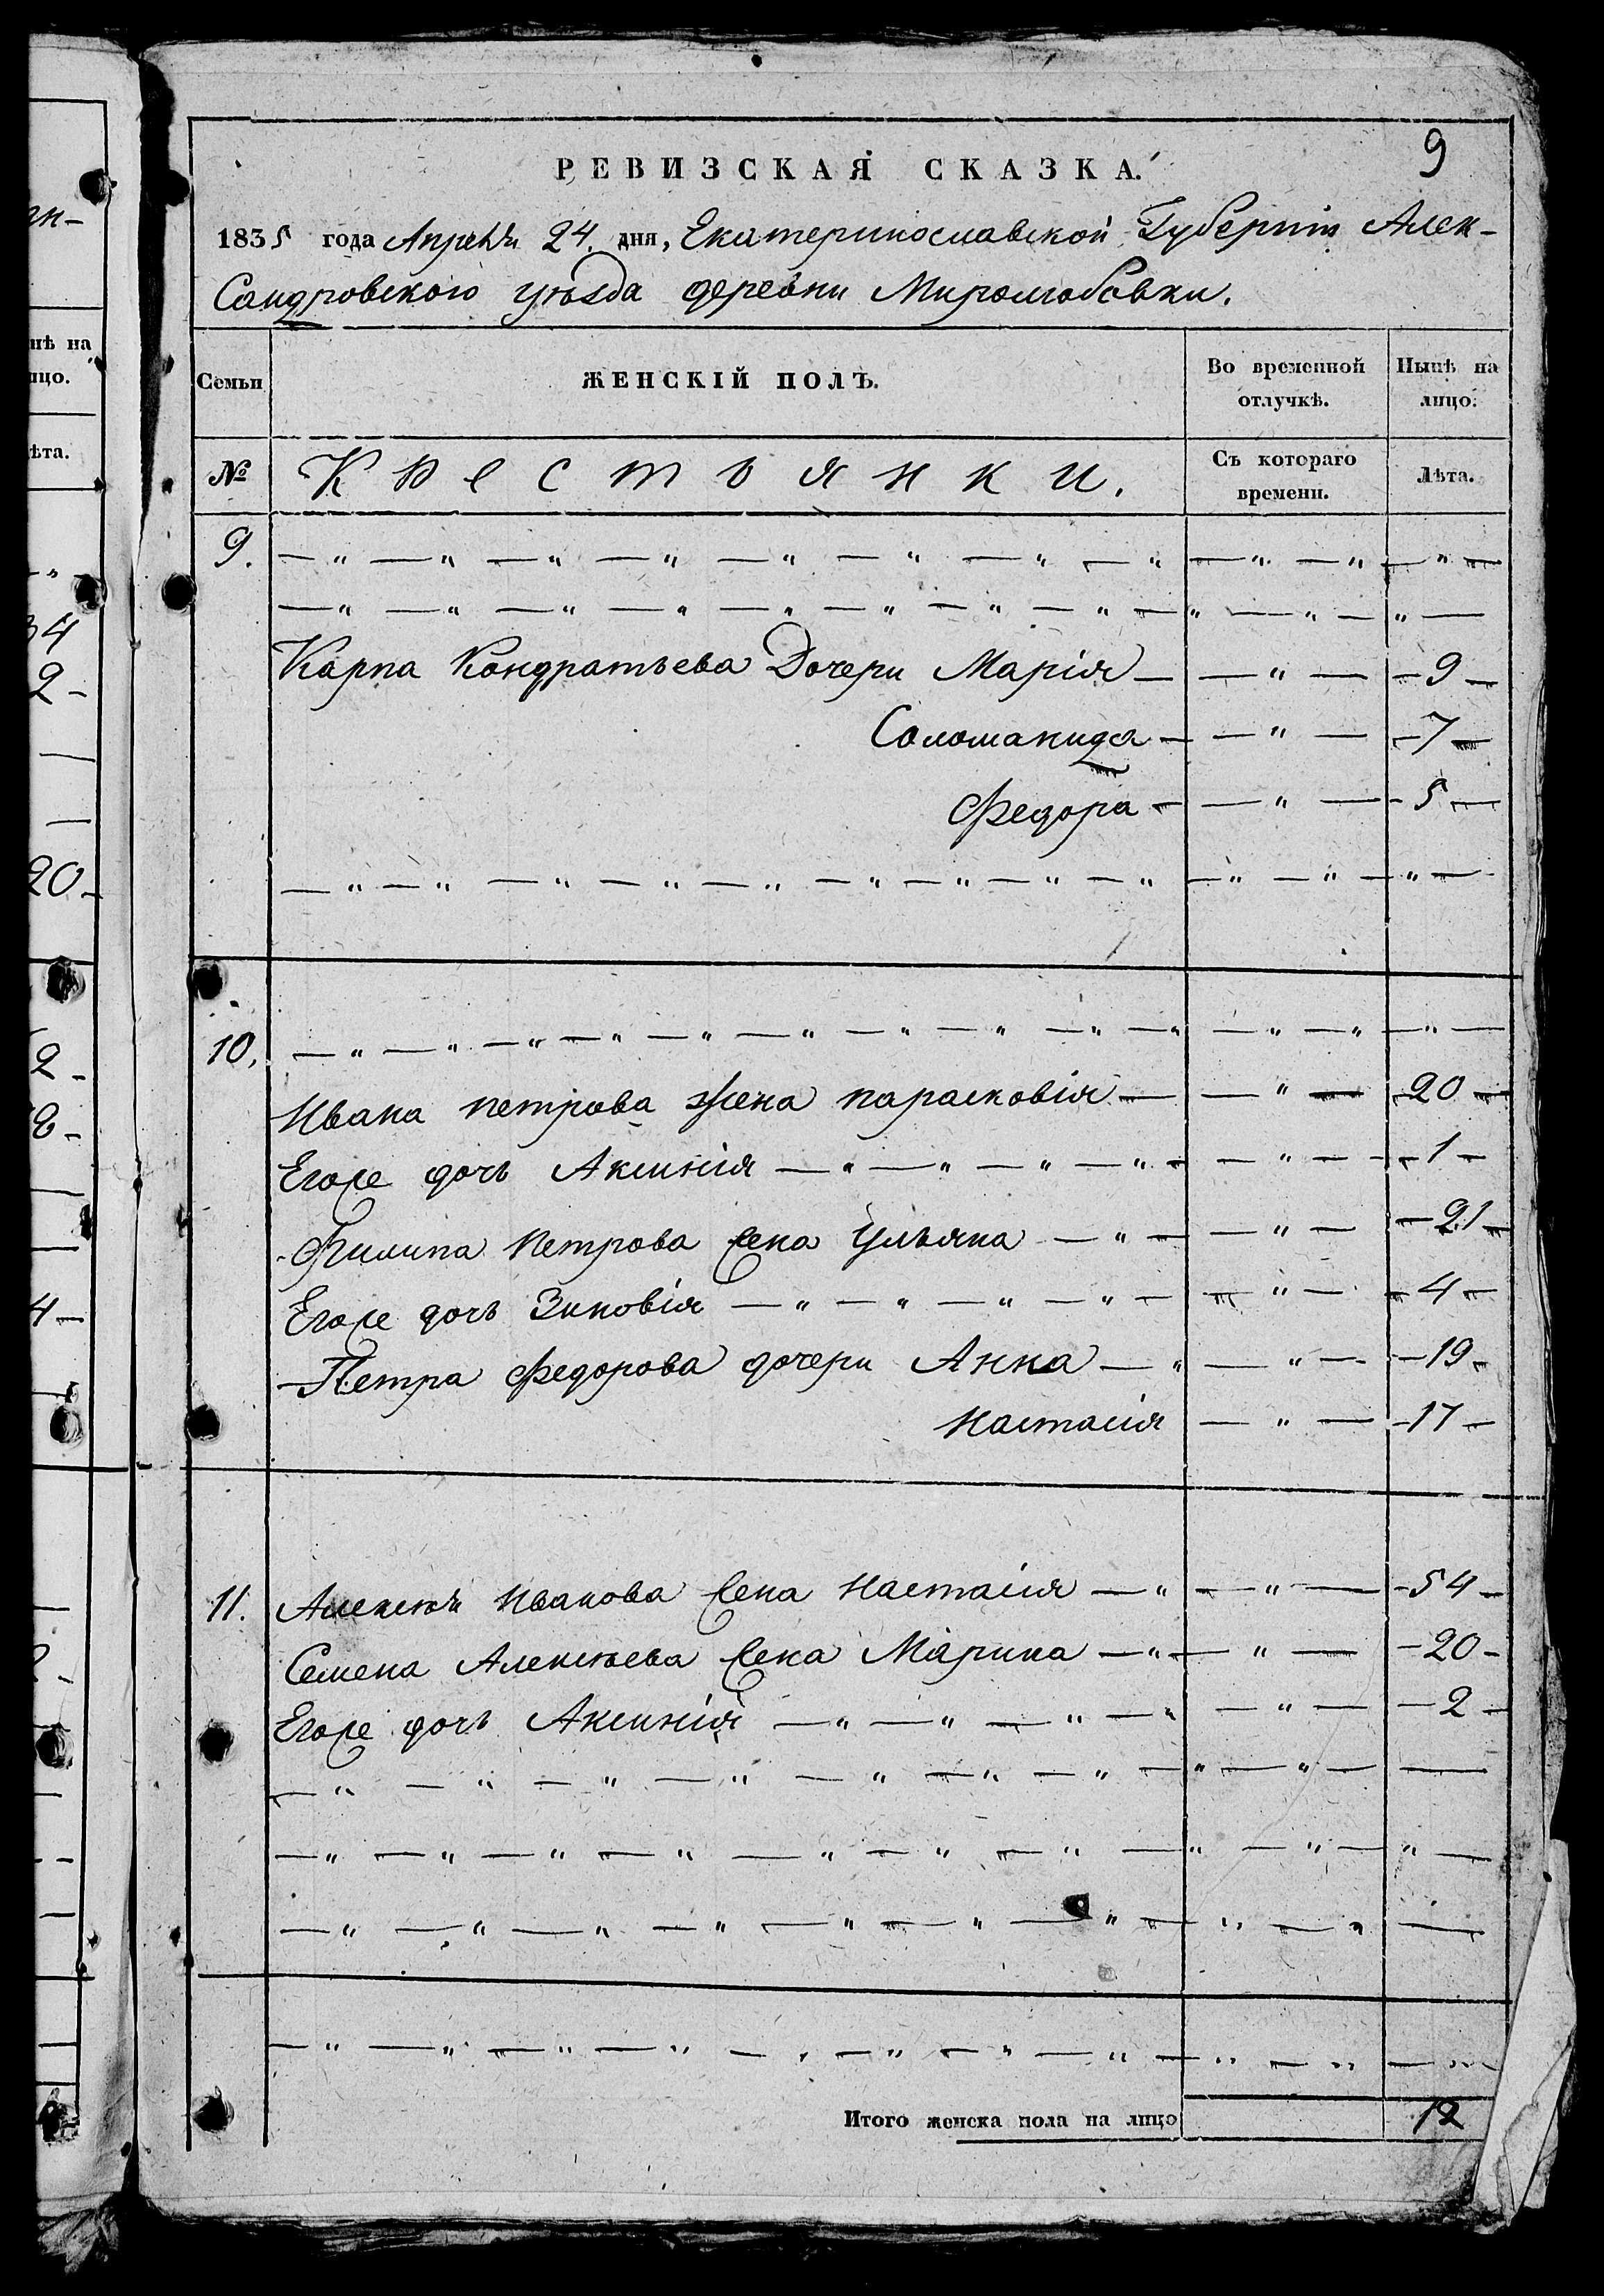 9
РЕВИЗСКАЯ СКАЗКА.
1835 года Апреля 24. дня, Екатеринославской Губерніи Алек-
Сандровского уѣзда деревни Миролюбовки.
Семьи
ЖЕНСКІЙ ПОЛЪ.
Во временной отлучкѣ.
Нынѣ на лицо.
№
Крестьянки.
Съ котораго времени.
Лѣта.
9.
Карпа Кондратьева Дочери Марія — — " — — 9 —
Соломанида — — " — — 7 —
Федора — — " — — 5 —
10.
Ивана петрова жена парасковія — — " — — 20 —
Егоже дочь Аксинія — " — " — " — " — — " — — 1 —
Филипа Петрова жена Ульяна — " — — " — — 21 —
Егоже дочь Зиновія — " — " — " — " — — " — — 4 —
Петра Федорова дочери Анна — " — " — — 19 —
Настасия — " — — 17 —
11. Алексѣя Иванова жена Настасия — " — " — — 54 —
Семена Алексѣева жена Марина — " — " — — 20 —
Егоже дочь Аксинія — " — " — " — " — " — — 2 —
Итого женска пола на лицо 12
нѣ на
ицо.
ѣта.
34
2 —
20 —
2 —
4 —